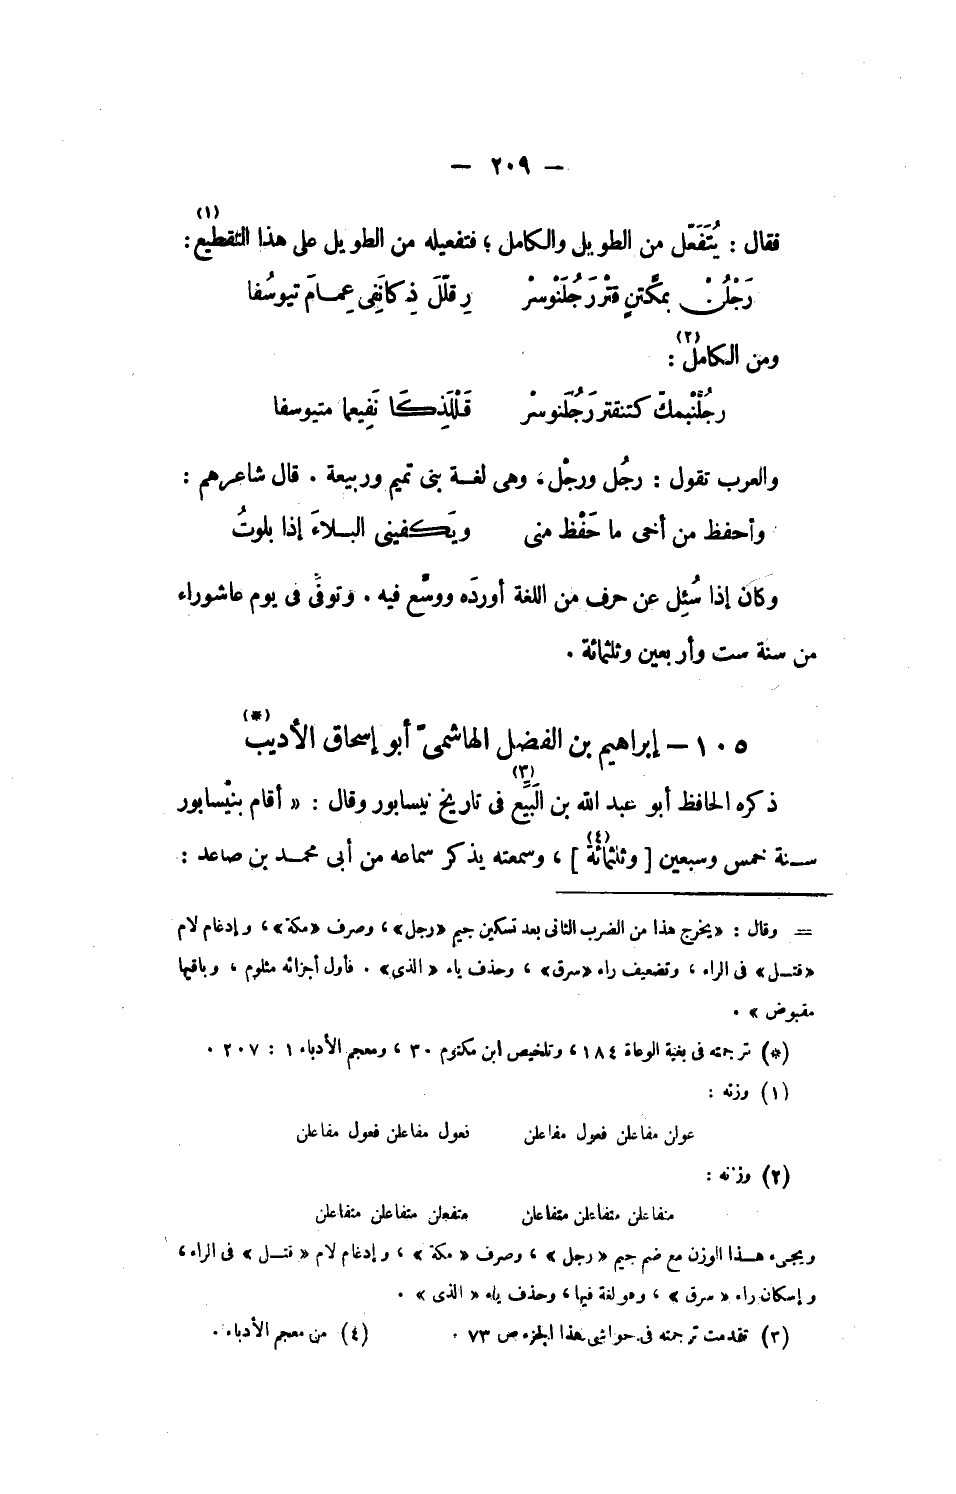 — ٢٠٩ —
فقال : يُتَفَعّل من الطويل والكامل ؛ فتفعيله من الطويل على هذا التقطيع(١) :
رَجْلُنْ بمكّتنِ قتْرَرَجُلَنْوسرْ رِقلّلَ ذِكانَفِى عِمامَ تيوسُفا
ومن الكامل(٢) :
رجُلُنْبمكّ كتنقتررَجُلَنوسرْ قَلْلَذِكَا نَفِيعما متيوسفا
والعرب تقول : رجُل ورجْل ، وهى لغة بنى تميم وربيعة . قال شاعرهم :
وأحفظ من أخى ما حَفْظ منى ويَكفينى البلاءَ إذا بلوتُ
وكان إذا سُئِل عن حرف من اللغة أورده ووسّع فيه . وتوفّى فى يوم عاشوراء
من سنة ست وأربعين وثلثمائة .
١٠٥ — إبراهيم بن الفضل الهاشمىّ أبو إسحاق الأديب(*)
ذكره الحافظ أبو عبد الله بن البَيِّع(٣) فى تاريخ نيسابور وقال : « أقام بنيْسابور
سنة خمس وسبعين [ وثلثمائة(٤) ] ، وسمعته يذكر سماعه من أبى محمد بن صاعد :
= وقال : «يخرج هذا من الضرب الثانى بعد تسكين جيم «رجل» ، وصرف «مكة» ، وإدغام لام
«قتل» فى الراء ، وتضعيف راء «سرق» ، وحذف ياء «الذى» . فأول أجزائه مثلوم ، وباقيها
مقبوض » .
(*) ترجمته فى بغية الوعاة ١٨٤ ، وتلخيص ابن مكتوم ٣٠ ، ومعجم الأدباء ١ : ٢٠٧ .
(١) وزنه :
عولن مفاعلن فعول مفاعلن فعول مفاعلن فعول مفاعلن
(٢) وزنه :
متفاعلن متفاعلن متفاعلن متفعلن متفاعلن متفاعلن
ويجىء هذا الوزن مع ضم جيم «رجل» ، وصرف «مكة» ، وإدغام لام «قتل» فى الراء ،
وإسكان راء «سرق» ، وهو لغة فيها ، وحذف ياء «الذى» .
(٣) تقدمت ترجمته فى حواشى هذا الجزء ص ٧٣ . (٤) من معجم الأدباء .